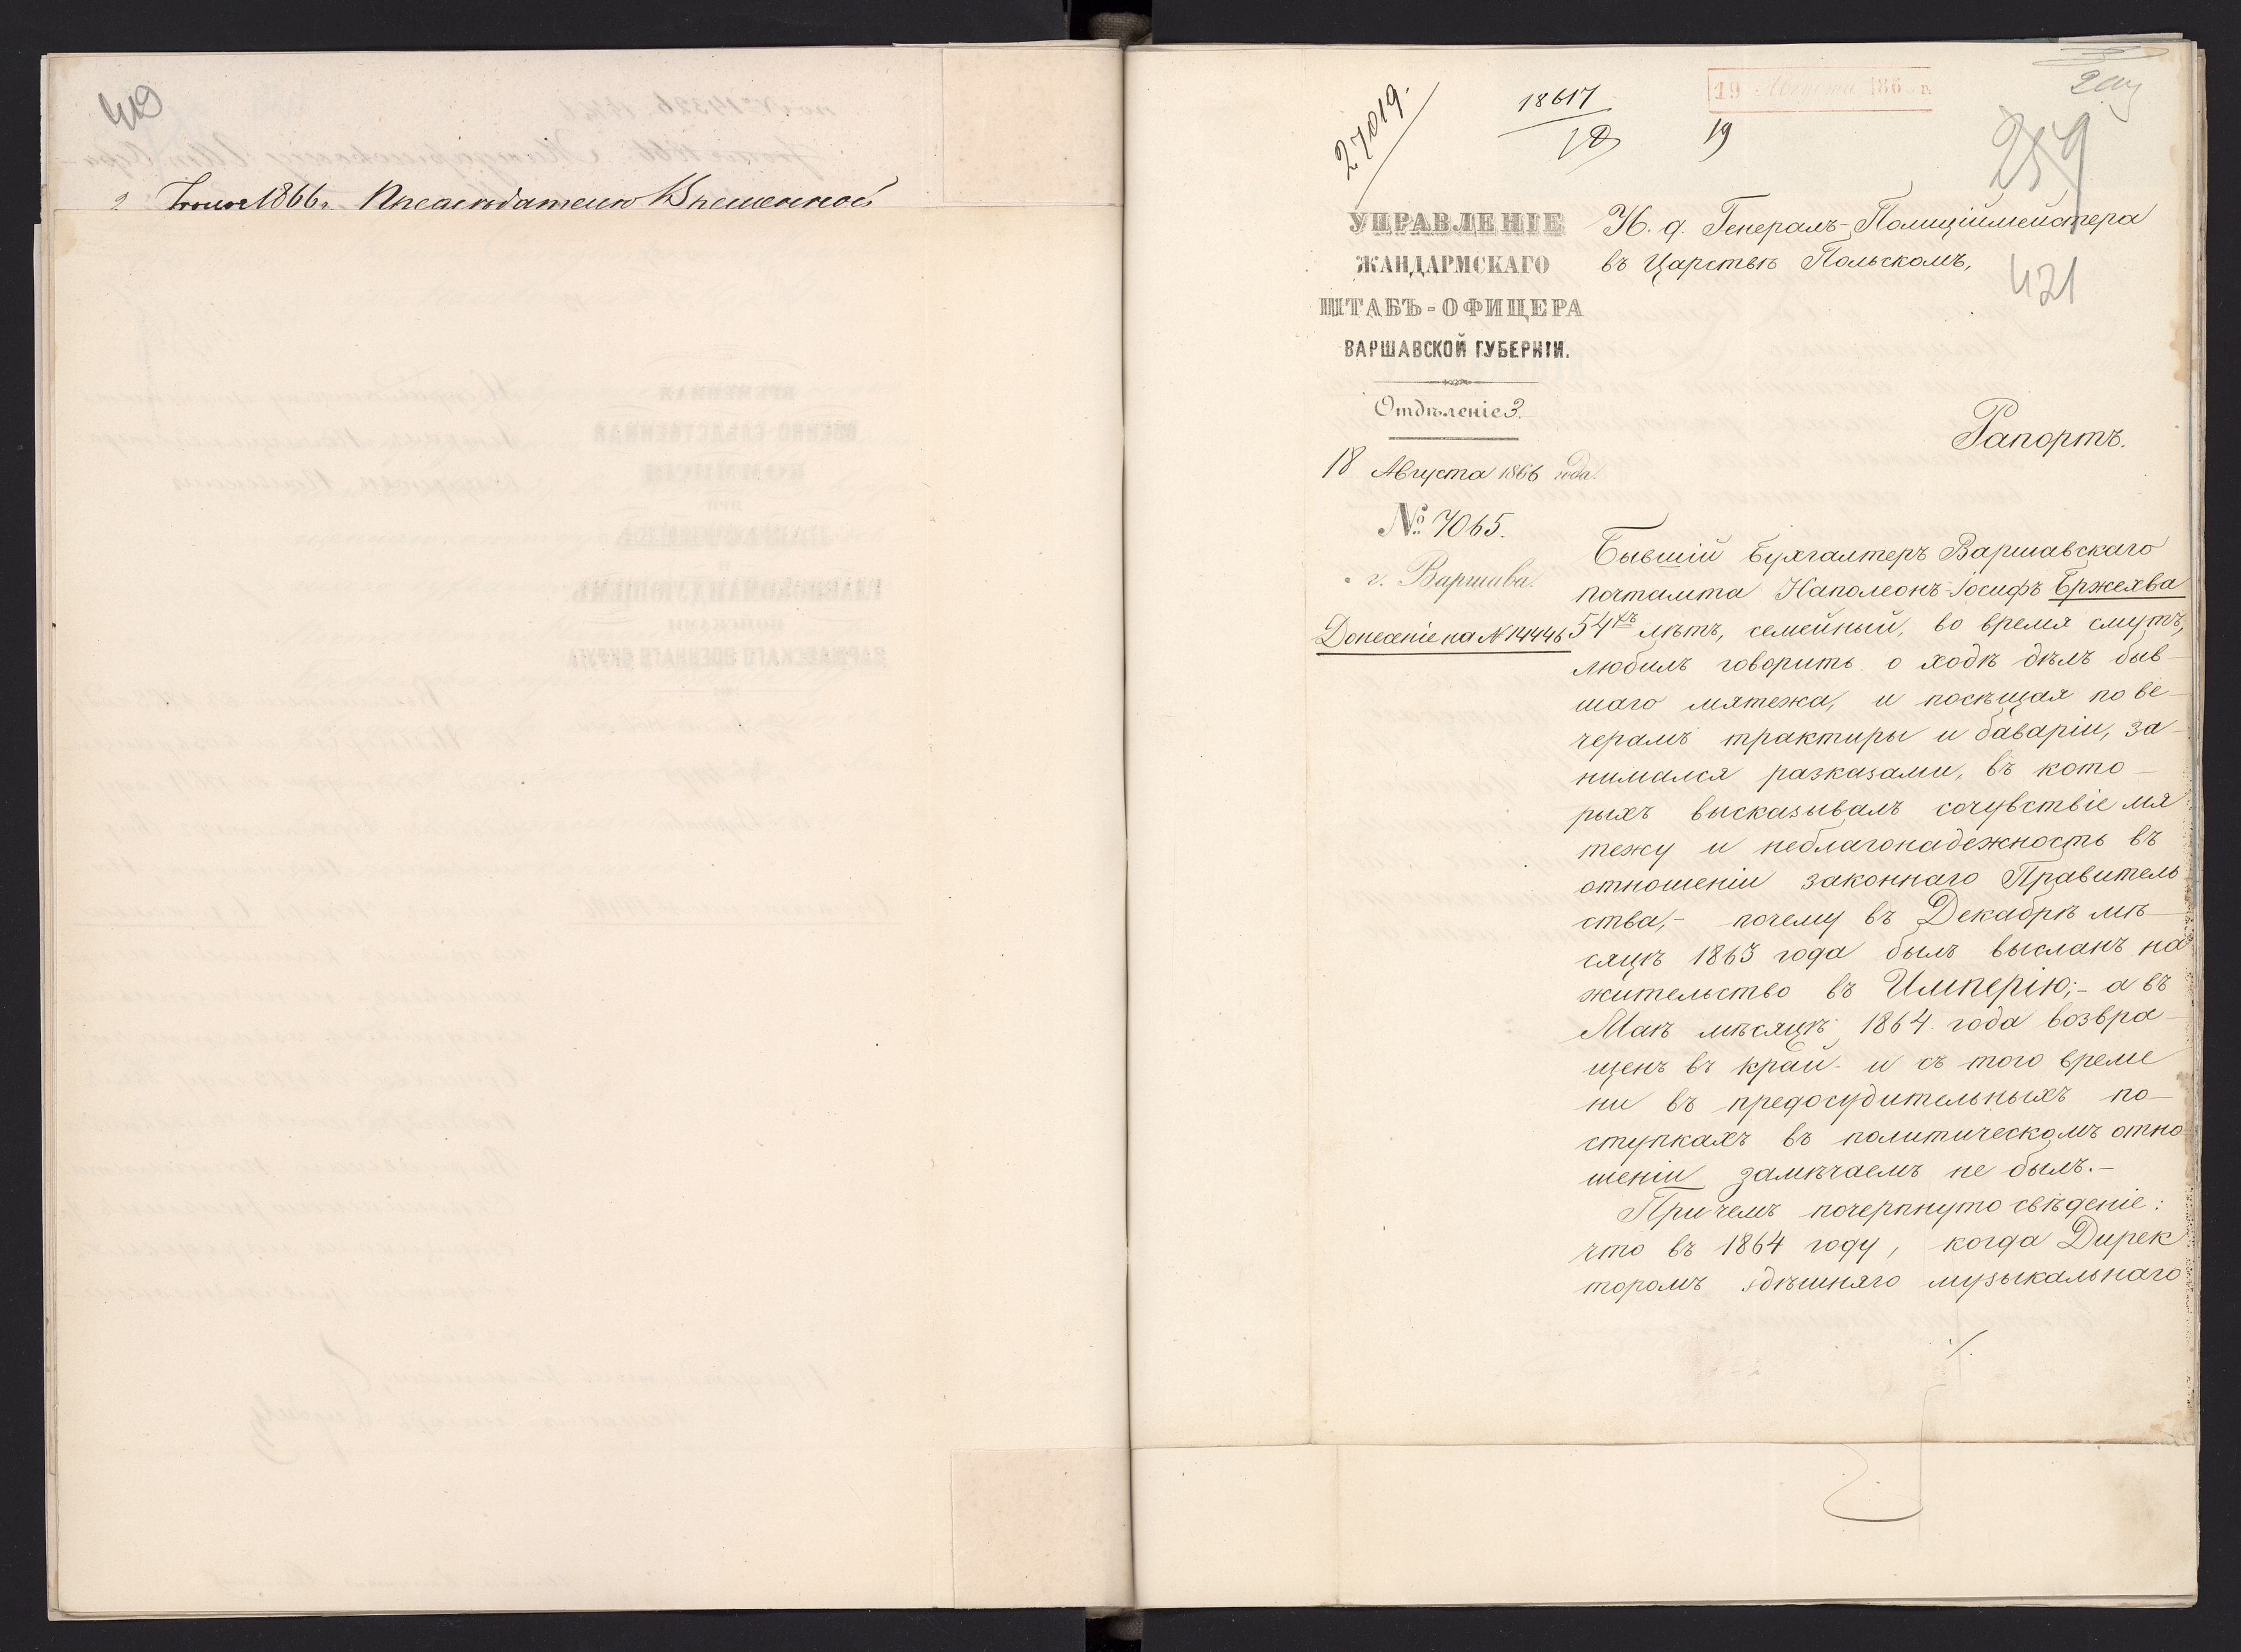 419
2 Іюня 1866 г. Предсѣдателю Временной
27019.
18617
19 Августа 186 г.
19
259
421
УПРАВЛЕНІЕ
ЖАНДАРМСКАГО
ШТАБЪ-ОФИЦЕРА
ВАРШАВСКОЙ ГУБЕРНІИ.
Отдѣленіе 3.
18 Августа 1866 года.
№ 7065.
г. Варшава.
Донесеніе на № 14446
И. д. Генералъ-Полиціймейстера
въ Царствѣ Польскомъ,
Рапортъ.
Бывшій Бухгалтеръ Варшавскаго
почтамта Наполеонъ-Іосифъ Бржехва
54хъ лѣтъ, семейный, во время смутъ,
любилъ говорить о ходѣ дѣлъ быв-
шаго мятежа, и посѣщая по ве-
черамъ трактиры и баваріи, за-
нимался разказами, въ кото-
рыхъ высказывалъ сочувствіе мя
тежу и неблагонадежность въ
отношеніи законнаго Правитель
ства,- почему въ Декабрѣ мѣ-
сяцѣ 1863 года былъ высланъ на
жительство въ Имперію;- а въ
Маѣ мѣсяцѣ 1864 года возвра-
щенъ въ край- и съ того време
ни въ предосудительныхъ по-
ступкахъ въ политическомъ отно
шеніи замѣчаемъ не былъ.-
Причемъ почерпнуто свѣденіе:
что въ 1864 году, когда Дирек
торомъ здѣшняго музыкальнаго
./.